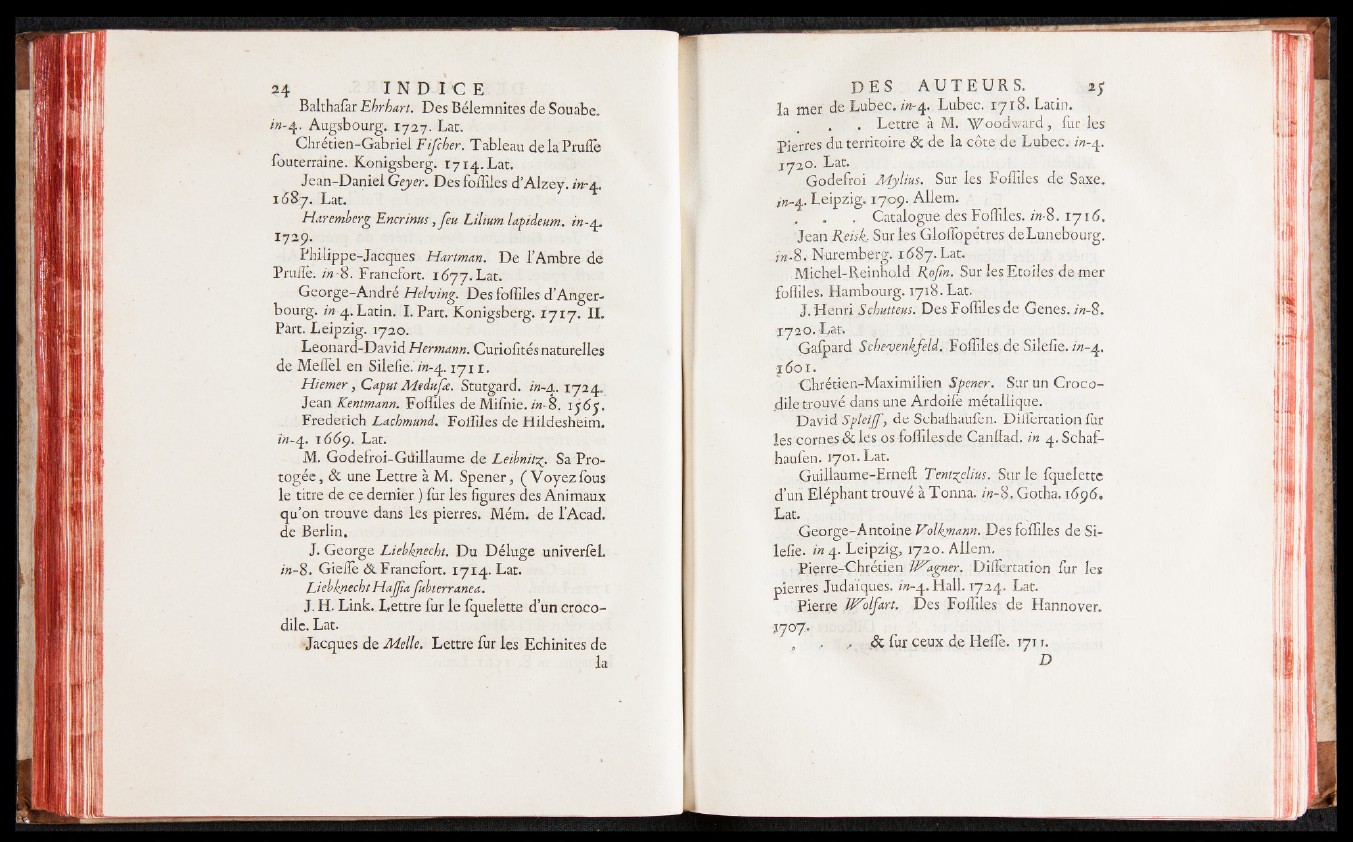 24 INDICE
Balthaſar Ehrhart. Des Bélemnites de Souabe.
in-4. Augsbourg. 1727. Lat.
Chrétien-Gabriel Fiſcher. Tableau de la Pruſſe
ſouterraine. Konigsberg. 1714. Lat.
Jean-Daniel Geyer. Des foſſiles d'Alzey. in-4.
1687. Lat.
Haremberg Encrinus, ſeu Lilium lapideum. in-4.
1729.
Philippe-Jacques Hartman. De l'Ambre de
Pruſſe. in-8. Francfort. 1677. Lat.
George-André Helving. Des foſſiles d'Anger-
bourg. in 4. Latin. I. Part. Konigsberg. 1717. II.
Part. Leipzig. 1720.
Leonard-David Hermann. Curioſités naturelles
de Meſſel en Sileſie. in-4. 1711.
Hiemer, Caput Meduſæ. Stutgard. in-4. 1724.
Jean Kentmann. Foſſiles de Miſnie. in-8. 1565.
Frederich Lachmund. Foſſiles de Hildesheim.
in-4. 1669. Lat.
M. Godefroi-Guillaume de Leibnitz. Sa Pro-
togée, & une Lettre à M. Spener, (Voyez ſous
le titre de ce dernier) ſur les figures des Animaux
qu'on trouve dans les pierres. Mém. de l'Acad.
de Berlin.
J. George Liebknecht. Du Déluge univerſel.
in-8. Gieſſe & Francfort. 1714. Lat.
Liebknecht Haſſia ſubterranea.
J. H. Link. Lettre ſur le ſquelette d'un croco-
dile. Lat.
Jacques de Melle. Lettre ſur les Echinites de
la
DES AUTEURS. 25
la mer de Lubec. in-4. Lubec. 1718. Latin.
. . . Lettre à M. Woodward, ſur les
Pierres du territoire & de la côte de Lubec. in-4.
1720. Lat.
Godefroi Mylius. Sur les Foſſiles de Saxe.
in-4. Leipzig. 1709. Allem.
. . . Catalogue des Foſſiles. in-8. 1716.
Jean Reisk. Sur les Gloſſopétres de Lunebourg.
in-8. Nuremberg. 1687. Lat.
Michel-Reinhold Roſin. Sur les Etoiles de mer
foſſiles. Hambourg. 1718. Lat.
J. Henri Schutteus. Des Foſſiles de Genes. in-8.
1720. Lat.
Gaſpard Schevenkfeld. Foſſiles de Sileſie. in-4.
1601.
Chrétien-Maximilien Spener. Sur un Croco-
dile trouvé dans une Ardoiſe métallique.
David Spleiſſ, de Schaſhauſen. Diſſertation ſur
les cornes & les os foſſiles de Canſtad. in 4. Schaf-
hauſen. 1701. Lat.
Guillaume-Erneſt Tentzelius. Sur le ſquelette
d'un Eléphant trouvé à Tonna. in-8. Gotha. 1696.
Lat.
George-Antoine Volkmann. Des foſſiles de Si-
leſie. in 4. Leipzig, 1720. Allem.
Pierre-Chrétien Wagner. Diſſertation ſur les
pierres Judaïques. in-4. Hall. 1724. Lat.
Pierre Wolfart. Des Foſſiles de Hannover.
1707.
. . . & ſur ceux de Heſſe. 1711.
D